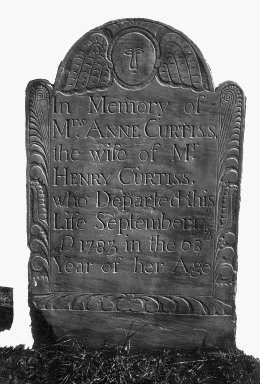 In Memory of
Mrs. ANNE CURTISS,
the wife of Mr.
HENRY CURTISS,
who Departed this
Life September
D 1783 in the 66th
Year of her Age